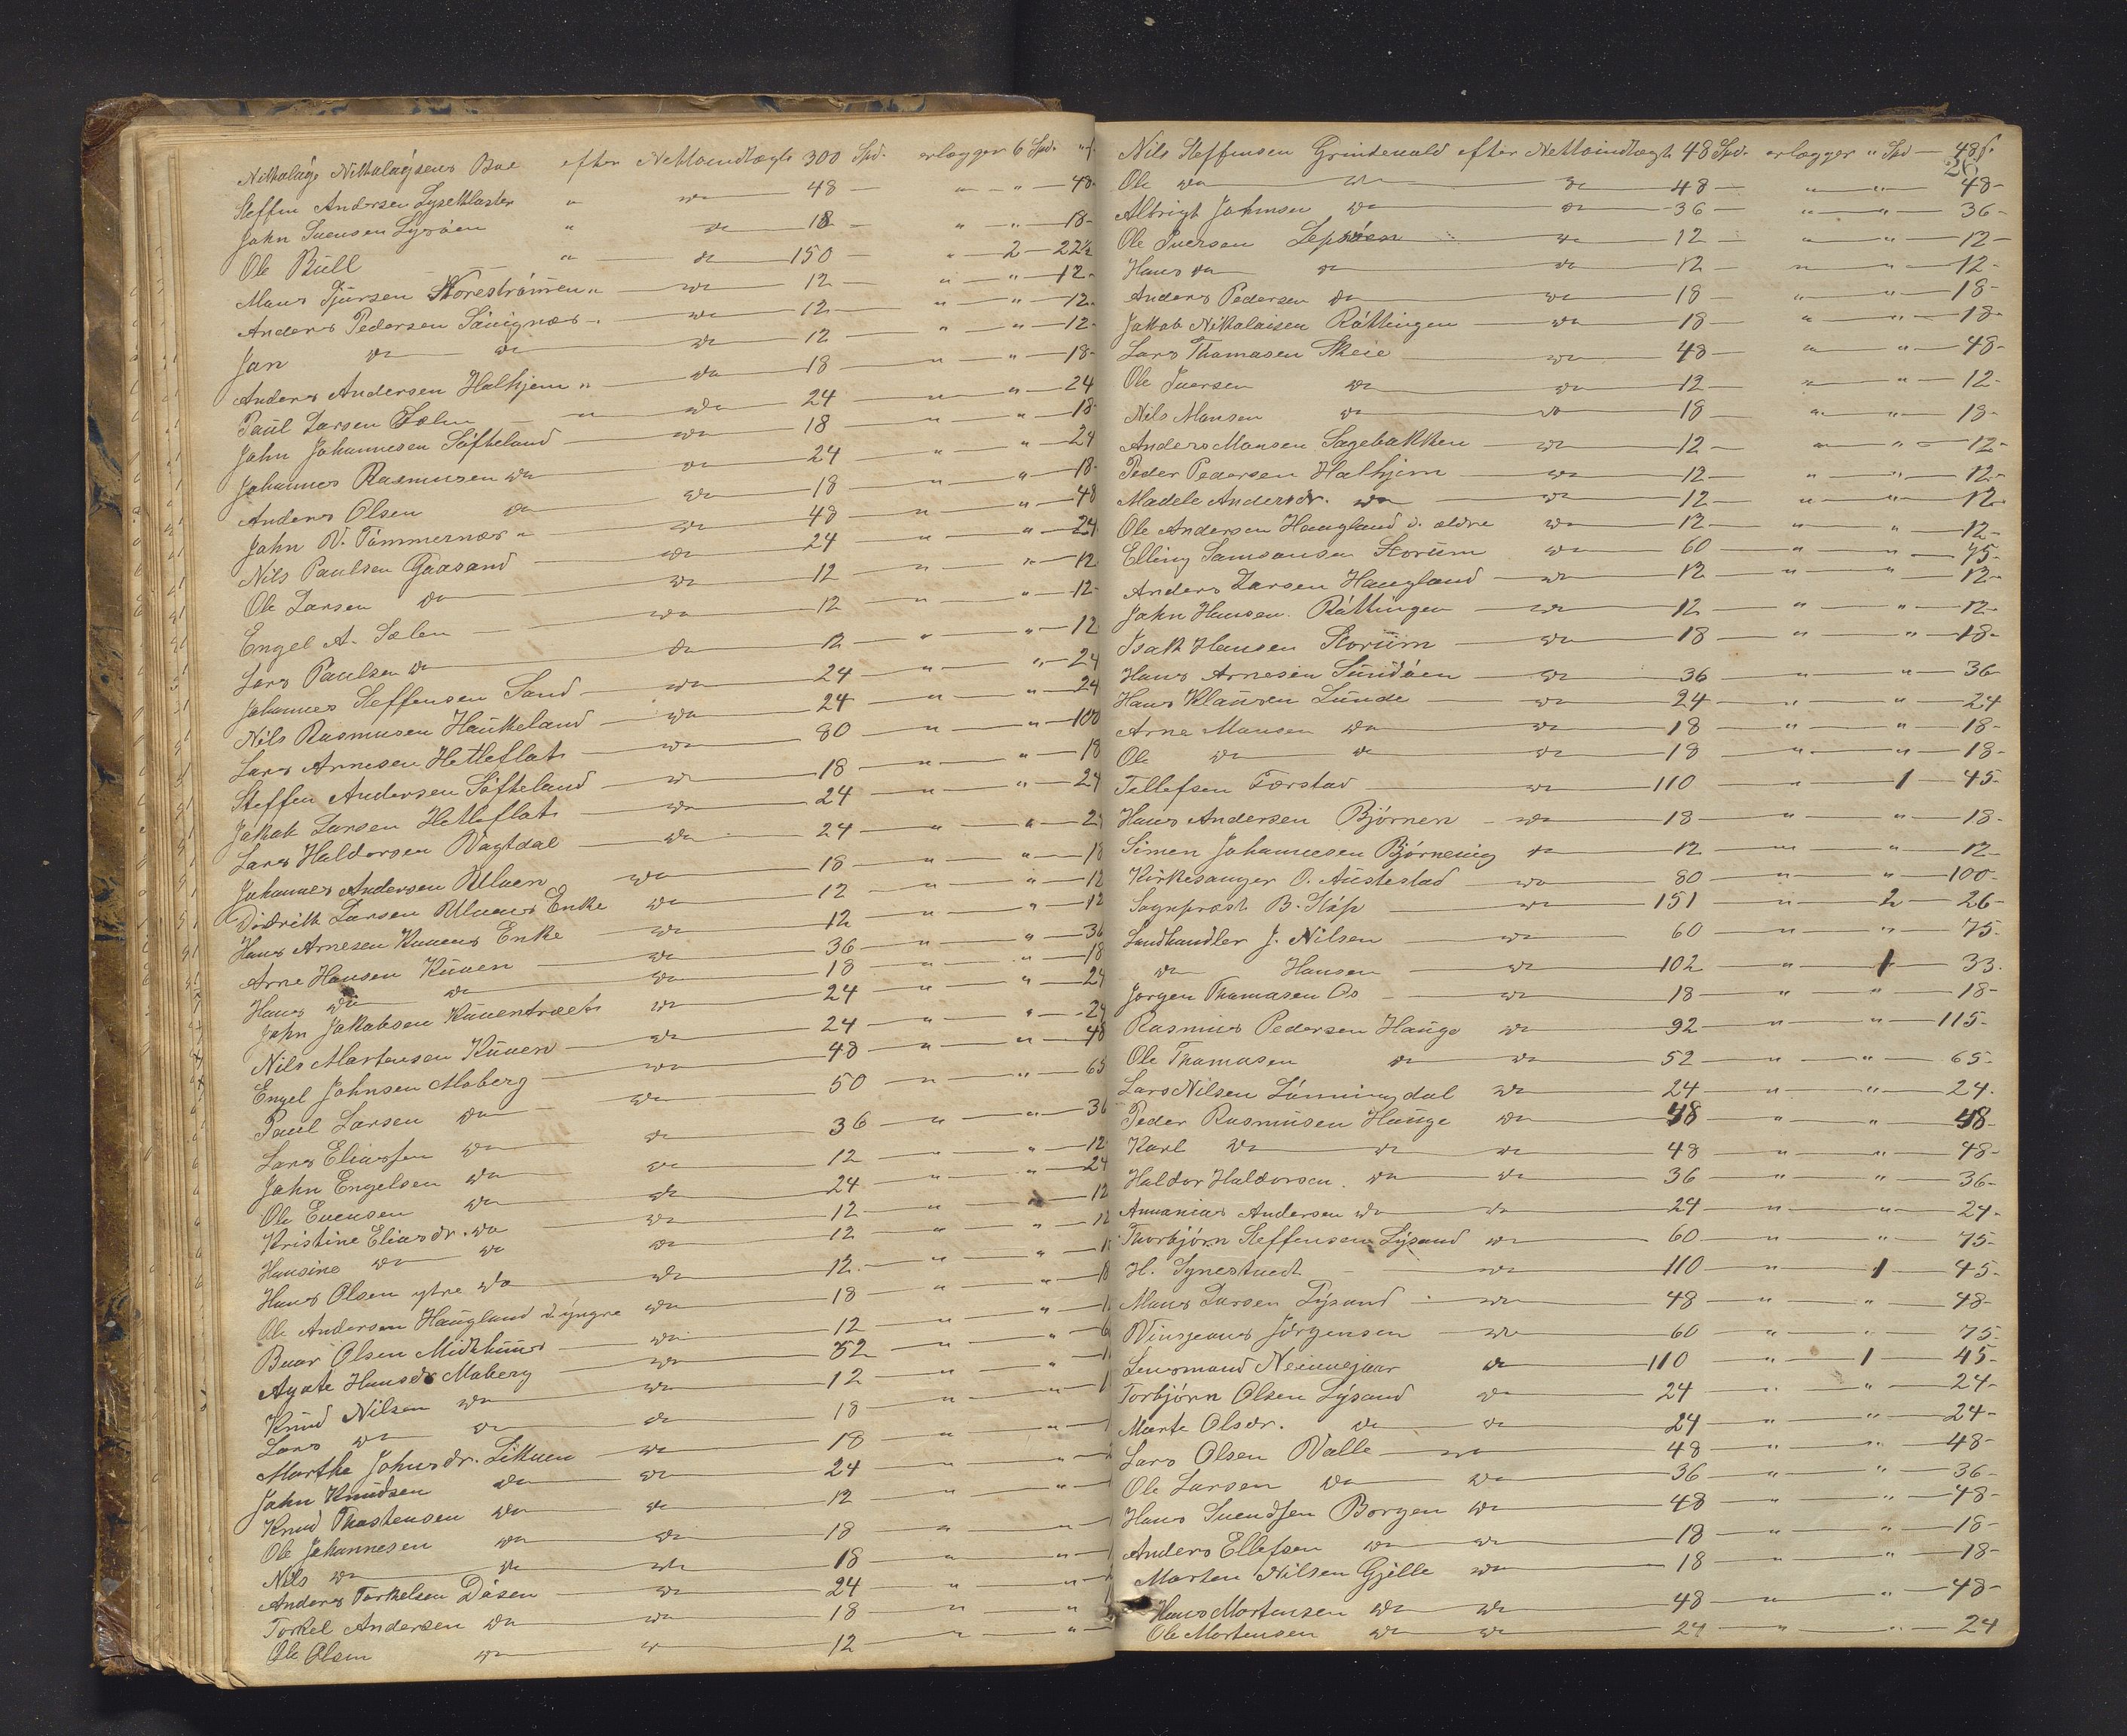 Nikkolåÿs Nikkolåÿsens Boe efter Nettoindtægt 300 Spd. erlægger 6 Spd. "
Steffen Andersen Lyseklosten " do 48 " " 48
John Svensen Lysöen " do 18 " " 18
Ole Bull " do 150 " 2 22½
Mons Tjursen Storeströmen " do 12 " " 12
Anders Pedersen Såvignæs do 12 " " 12
Jan do do do 12 " " 12
Anders Andersen Halhjem " do 18 " " 18
Paul Larsen Sælen " do 24 " " 24
John Johannesen Söfteland do 18 " " 18
Johannes Rasmusen do do 24 " " 24
Anders Olsen do do 18 " " 18
John N. Tömmernæs " do 48 " " 48
Nils Paulsen Gaasand do 24 " " 24
Ole Larsen do do 12 " " 12
Engel A. Sælen do 12 " " 12
Lars Paulsen do do 12 " " 12
Johannes Steffensen Sand do 24 " " 24
Nils Rasmusen Haukeland do 24 " " 24
Lars Arnesen Hetleflat do 80 " " 100
Steffen Andersen Söfteland do 18 " " 18
Jakob Larsen Hetleflat do 24 " " 24
Lars Haldorsen Vagtdal do 24 " " 2
Johannes Andersen Ulven do 18 " " 18
Didrikk Larsen Ulvens Enke do 12 " " 12
Hans Arnesen Kuvens Enke do 12 " " 12
Arne Hansen Kuven do 36 " " 36
Hans do do do 18 " " 18
John Jakobsen Kuventræet do 24 " " 24
Nils Martensen Kuven do 24 " " 24
Engel Johnsen Moberg do 48 " " 48
Paul Larsen do do 50 " " 63
Lars Eliassen do do 36 " " 36
John Engelsen do do 12 " " 12
Ole Evensen do do 24 " " 24
Kristine Eliasdr. do do 12 " " 12
Hansine do do do 12 " " 12
Hans Olsen ytre do do 12 " " 1
Ole Andersen Haugland d. yngre do 18 " " 18
Boar Olsen Midthuus do 12 " " 1
Agate Hansdr Moberg do 52 " " 6
Knud Nilsen do do 12 " " 1
Lars do do do 18 " " 1
Marthe Johnsdr. Likuen do 18 " "
John Knudsen do do 24 " "
Knud Thostensen do do 12 " "
Ole Johannesen do do 18 " "
Nils do do do 18 " "
Anders Torkelsen Dösen do 24 " "
Torkel Andersen do do 18 " "
Ole Olsen do do 12 " "
Nils Steffensen Grindevald efter Nettoindtægt 48 Spd. erlægger " Spd 48 s.
26
Ole do do do 48 " " 48
Albrigt Johnsen do do 36 " " 36
Ole Iversen Lepsöen do 12 " " 12
Hans do do do 12 " " 12
Anders Pedersen do do 18 " " 18
Jakob Nikkolaisen Råttingen do 18 " " 18
Lars Thomasen Skeie do 48 " " 48
Ole Iversen do do 12 " " 12
Nils Monsen do do 18 " " 18
Anders Monsen Sagebakken do 12 " " 12
Peder Pedersen Halhjem do 12 " " 12
Madele Andersdr. do do 12 " " 12
Ole Andersen Haugland d. ældre do 12 " " 12
Elling Samsonsen Storum do 60 " " 75
Anders Larsen Haugland do 12 " " 12
John Hansen Råttingen do 12 " " 12
Isakk Hansen Storum do 18 " " 18
Hans Arnesen Sundöen do 36 " " 36
Hans Klausen Lunde do 24 " " 24
Arne Monsen do do 18 " " 18
Ole do do do 18 " " 18
Tellefsen Færstad do 110 " 1 45
Hans Andersen Björnen do 18 " " 18
Simen Johannesen Björnening do 12 " " 12
Kirkesanger O. Austestad do 80 " " 100
Sognpræst B. Kåp do 151 " 2 26
Landhandler J. Nilsen do 60 " " 75
do Hansen do 102 " 1 33
Jørgen Thomasen Os do 18 " " 18
Rasmus Pedersen Hauge do 92 " " 115
Ole Thomasen do do 52 " " 65
Lars Nilsen Lönningdal do 24 " " 24
Peder Rasmusen Hauge do 48 " " 48
Karl do do do 48 " " 48
Haldor Haldorsen do do 36 " " 36
Annanias Andersen do do 24 " " 24
Thorbjörn Steffensen Lysand do 60 " " 75
H. Synestvedt do 110 " 1 45
Mons Larsen Lysand do 48 " " 48
Vinsjeans Jörgensen do 60 " " 75
Lensmand Neumejaar do 110 " 1 45
Torbjörn Olsen Lysand do 24 " " 24
Marte Olsdr. do do 24 " " 24
Lars Olsen Valle do 48 " " 48
Ole Larsen do do 36 " " 36
Hans Svendsen Borgen do 48 " " 48
Anders Ellefsen do do 18 " " 18
Morten Nilsen Gjelle do 18 " " 18
Hans Mortensen do do 48 " " 48
Ole Mortensen do do 24 " " 24